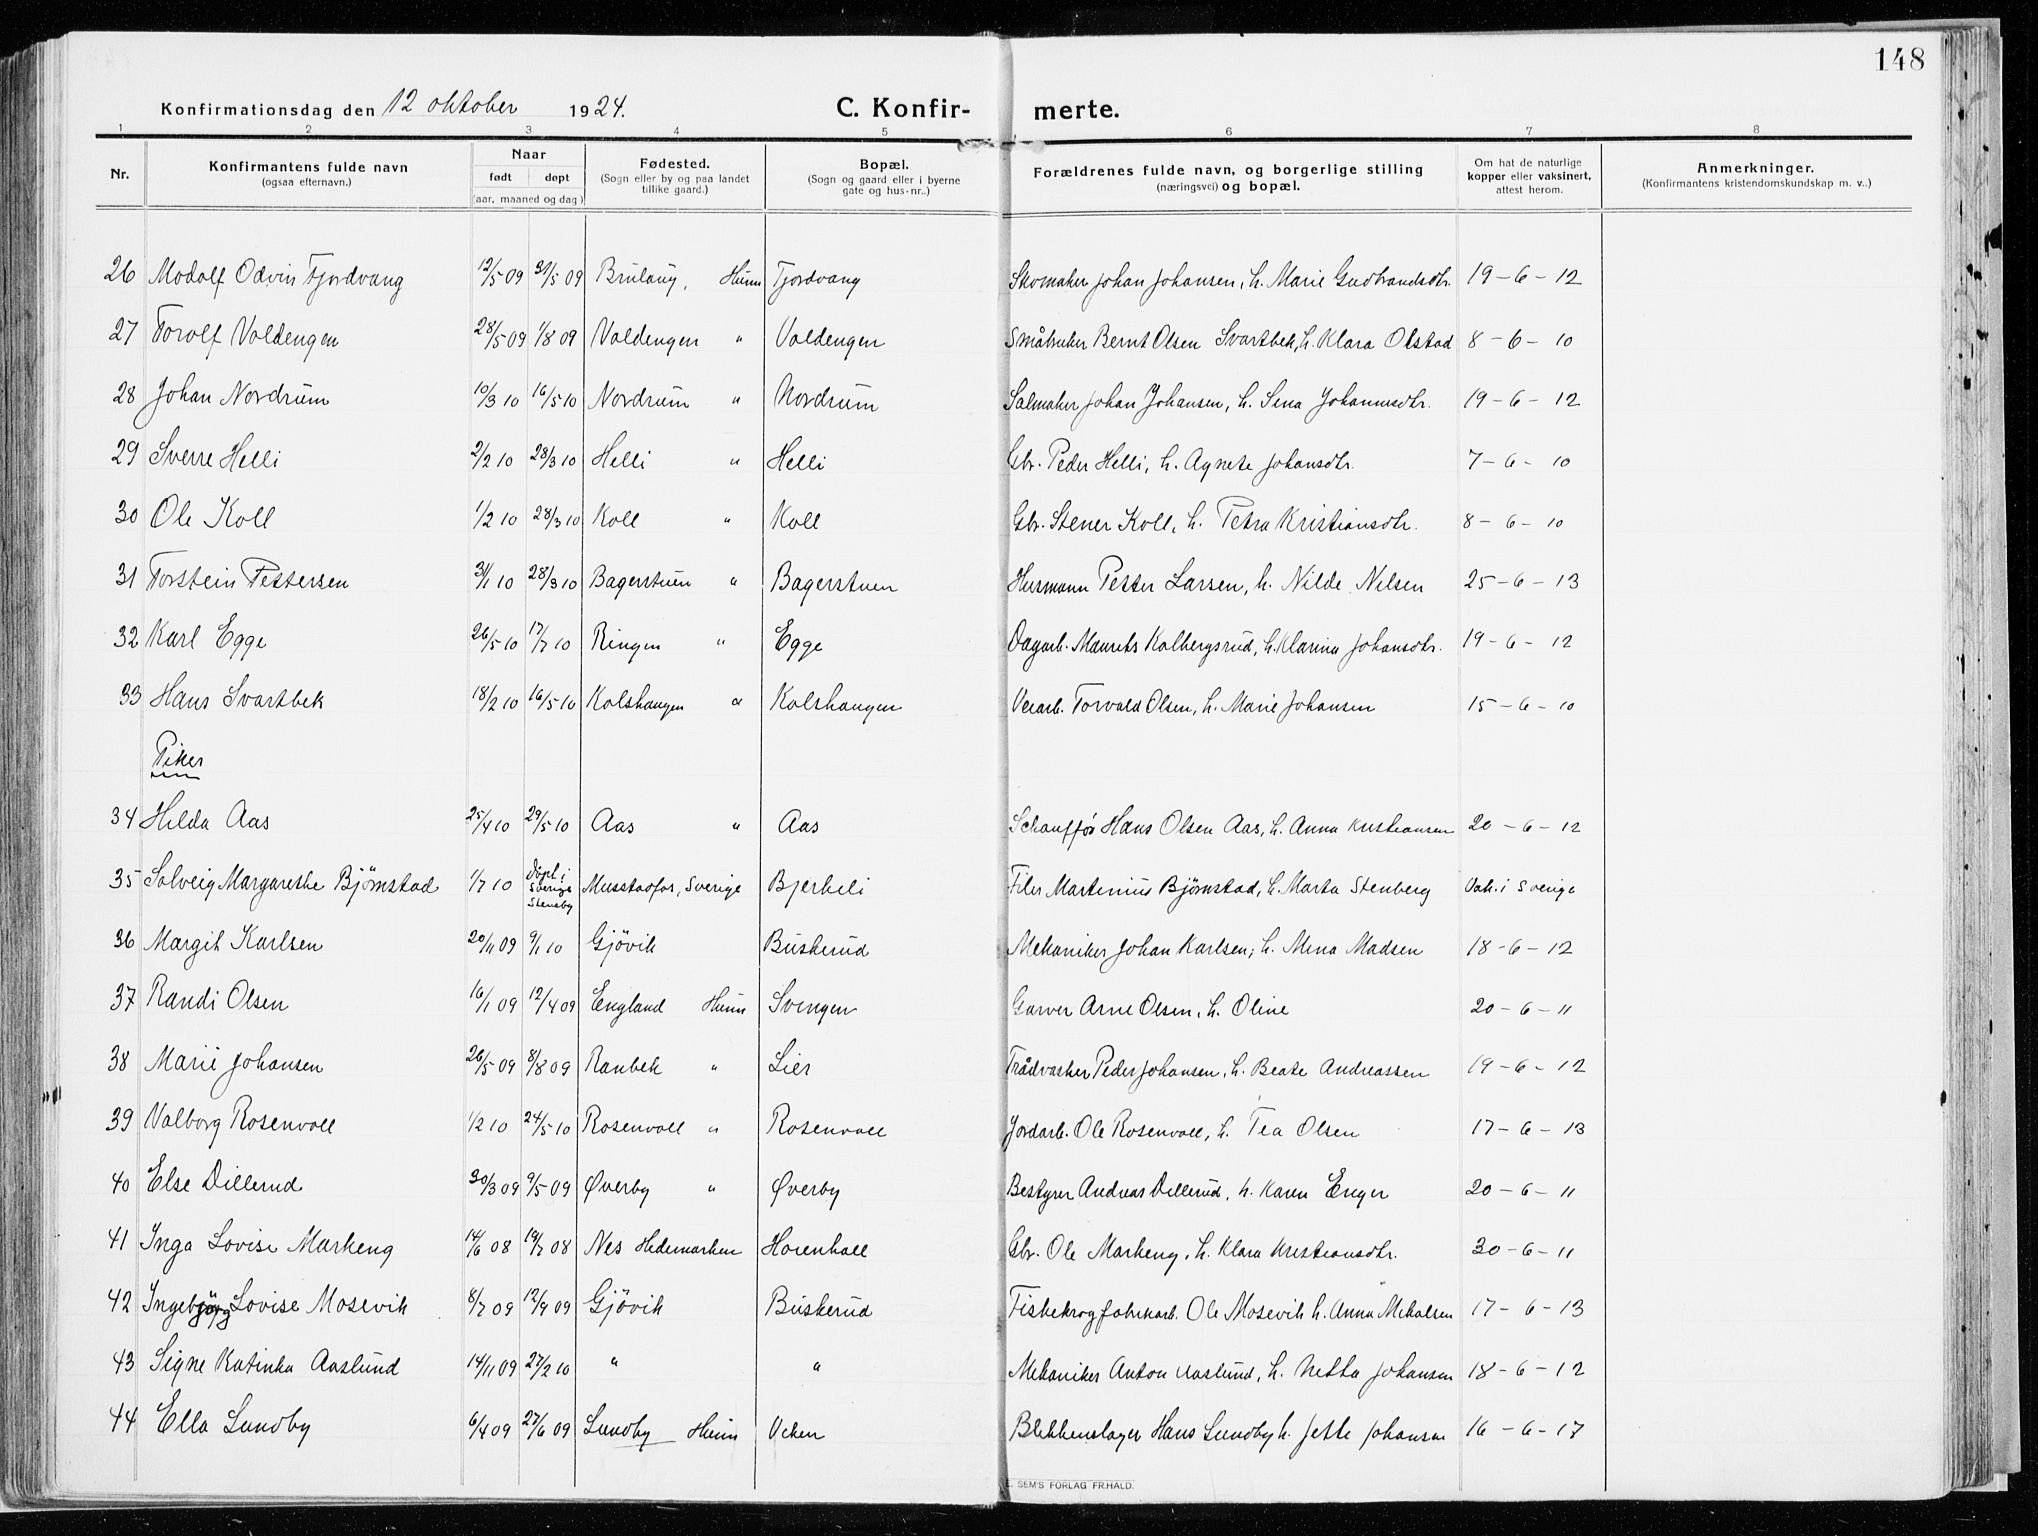 148
Konfirmationsdag den 12 oktober 1924. C. Konfir- merte.
1 2 3 4 5 6 7 8
Nr. Konfirmantens fulde navn (ogsaa efternavn.) Naar født døpt (aar, maaned og dag) Fødested. (Sogn eller by og paa landet tillike gaard.) Bopæl. (Sogn og gaard eller i byerne gate og hus-nr..) Forældrenes fulde navn, og borgerlige stilling (næringsvei) og bopæl. Om hat de naturlige kopper eller vaksinert, attest herom. Anmerkninger. (Konfirmantens kristendomskundskap m. v..)
26 Modolf Odvin Fjordvang 12/5 09 31/5 09 Brulaug, Hunn Fjordvang Skomaker Johan Johansen, h. Marie Gudbrandsdtr. 19-6-12
27 Torolf Voldengen 28/5 09 1/8 09 Voldengen " Voldengen Småbruker Bernt Olsen Svartbek, h. Klara Olstad 8-6-10
28 Johan Nordrum 10/3 10 16/5 10 Nordrum " Nordrum Salmaker Johan Johansen, h. Sina Johannesdtr. 19-6-12
29 Sverre Helli 2/2 10 28/3 10 Helli " Helli Gbr. Peder Helli, h. Agnete Johansdtr. 7-6-10
30 Ole Koll 1/2 10 28/3 10 Koll " Koll Gbr. Stener Koll, h. Petra Kristiansdtr. 8-6-10
31 Torstein Pettersen 31/1 10 28/3 10 Bagerstuen " Bagerstuen Husmann Petter Larsen, h. Nilde Nilsen 25-6-13
32 Karl Egge 26/5 10 17/7 10 Ringen " Egge Dagarb. Maurits Kolbergsrud, h. Klarina Johansdtr. 19-6-12
33 Hans Svartbek 18/2 10 16/5 10 Kolshaugen " Kolshaugen Veiarb. Torvald Olsen, h. Marie Johansen 15-6-10
Piker
34 Hilda Aas 25/4 10 29/5 10 Aas " Aas Schauffør Hans Olsen Aas, h. Anna Kristiansen 20-6-12
35 Solveig Margarethe Bjørnstad 1/7 10 Døpt i Sverige Steneby Musstadfos, Sverige Bjerkeli Filer Martinius Bjørnstad, h. Marta Stenberg Vak. i Sverige
36 Margit Karlsen 20/11 09 9/1 10 Gjövik Buskerud Mekaniker Johan Karlsen, h. Mina Madsen 18-6-12
37 Randi Olsen 16/1 09 12/4 09 England Hunn Svingen Garver Arne Olsen, h. Oline 20-6-11
38 Marie Johansen 26/5 09 8/8 09 Raubek " Lier Trådvasker Peder Johansen, h. Beate Andreassen 19-6-12
39 Valborg Rosenvoll 1/2 10 24/5 10 Rosenvoll " Rosenvoll Jordarb. Ole Rosenvoll, h. Tea Olsen 17-6-13
40 Else Dillerud 30/3 09 9/5 09 Øverby " Øverby Bestyrer Andreas Dillerud, h. Karen Enger 20-6-11
41 Inga Lovise Markeng 14/6 08 19/7 08 Nes Hedemarken Hovenhall Gbr. Ole Markeng, h. Klara Kristiansdtr. 30-6-11
42 Ingebjörg Lovise Mosevik 8/7 09 12/9 09 Gjövik Buskerud Fiskekrogfabrikarb. Ole Mosevik h. Anna Mikalsen 17-6-13
43 Signe Katinka Aaslund 14/11 09 27/2 10 " " Mekaniker Anton Aaslund, h. Netta Johansen 18-6-12
44 Ella Lundby 6/4 09 27/6 09 Lundby Hunn Viken Blikkenslager Hans Lundby h. Jette Johansen 16-6-17
SEM'S FORLAG FR.HALD.